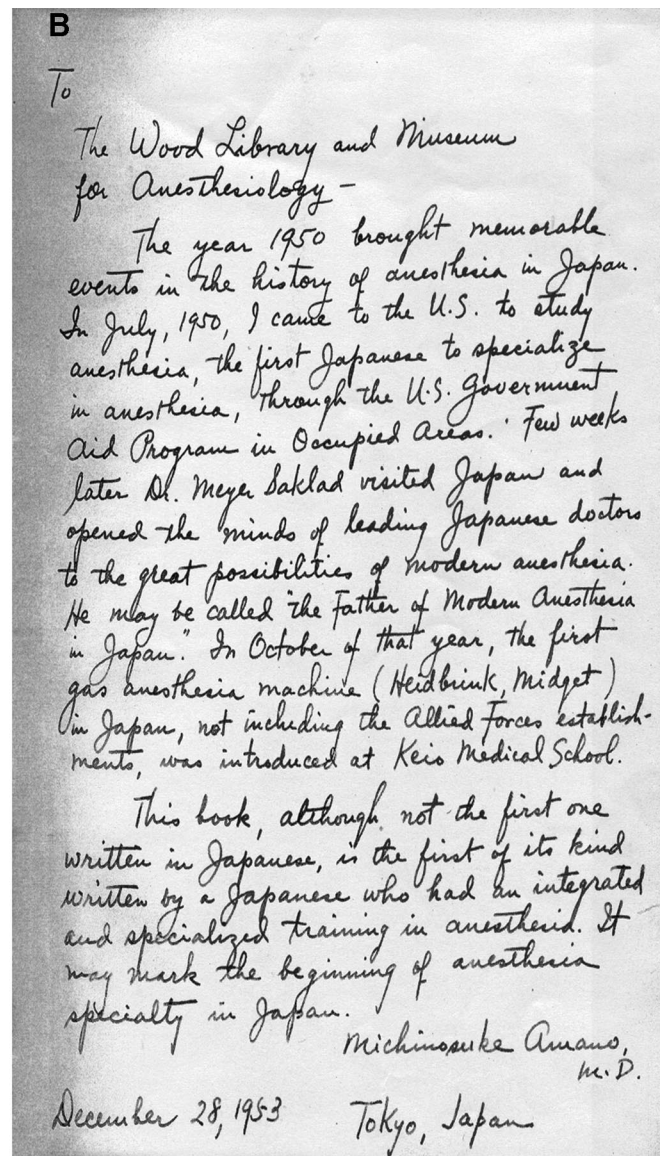 B
To
The Wood Library and Museum
for Anesthesiology –
The year 1950 brought memorable
events in the history of anesthesia in Japan.
In July, 1950, I came to the U.S. to study
anesthesia, the first Japanese to specialize
in anesthesia, through the U.S. Government
Aid Program in Occupied Areas. Few weeks
later Dr. Meyer Saklad visited Japan and
opened the minds of leading Japanese doctors
to the great possibilities of modern anesthesia.
He may be called "the Father of Modern Anesthesia
in Japan." In October of that year, the first
gas anesthesia machine (Heidbrink, Midget)
in Japan, not including the Allied Forces establish-
ments, was introduced at Keio Medical School.
This book, although not the first one
written in Japanese, is the first of its kind
written by a Japanese who had an integrated
and specialized training in anesthesia. It
may mark the beginning of anesthesia
specialty in Japan.
Michinosuke Amano,
M.D.
December 28, 1953 Tokyo, Japan